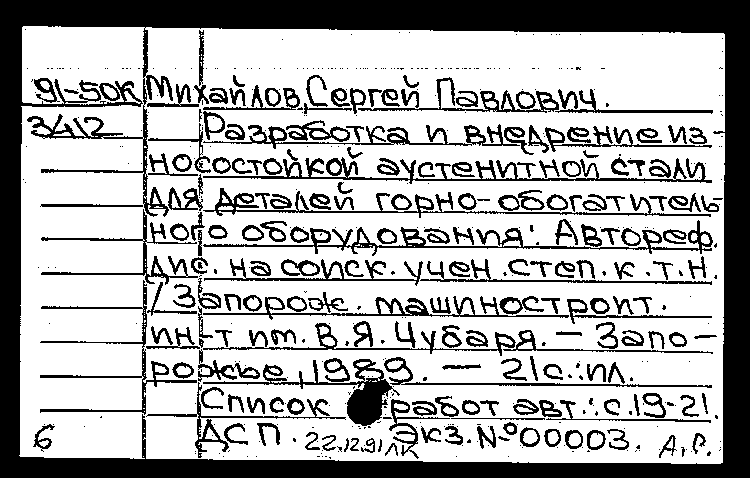 91-50К Михайлов, Сергей Павлович.
3412 Разработка и внедрение из-
носостойкой аустенитной стали
для деталей горно-обогатитель-
ного оборудования: Автореф.
дис. на соиск. учен. степ. к.т.н.
/ Запорож. машиностроит.
ин-т им. В.Я. Чубаря. — Запо-
рожье, 1989. — 21 с.: ил.
Список работ авт.: с. 19-21.
6 ДСП. 22.12.91 ЛК Экз. № 00003. А.С.